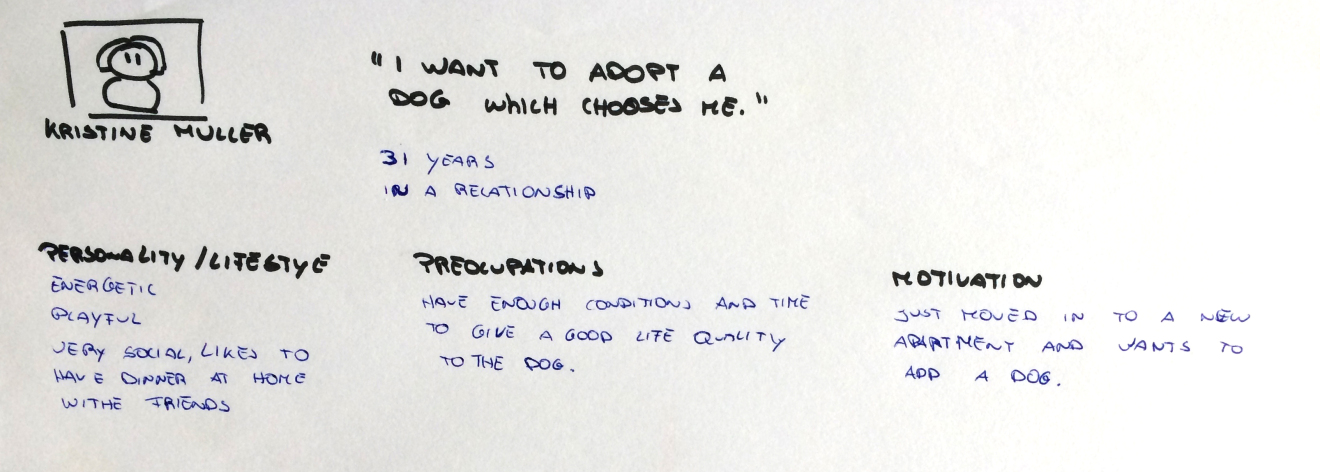 KRISTINE MULLER
"I WANT TO ADOPT A
DOG WHICH CHOOSES ME."
31 YEARS
IN A RELATIONSHIP
PERSONALITY/LIFESTYE
ENERGETIC
PLAYFUL
VERY SOCIAL, LIKES TO
HAVE DINNER AT HOME
WITHE FRIENDS
PREOCUPATIONS
HAVE ENOUGH CONDITIONS AND TIME
TO GIVE A GOOD LIFE QUALITY
TO THE DOG.
MOTIVATION
JUST MOVED IN TO A NEW
APARTMENT AND WANTS TO
ADD A DOG.